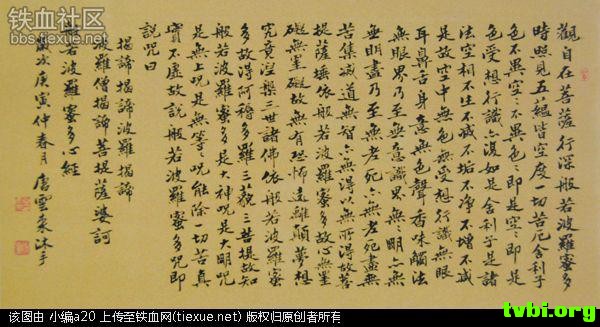 铁血社区
tiexue.net
觀自在菩薩行深般若波羅蜜多
時照見五蘊皆空度一切苦厄舍利子
色不異空〻不異色〻即是空〻即是
色受想行識亦復如是舍利子是諸
法空相不生不滅不垢不淨不增不減
是故空中無色無受想行識無眼
耳鼻舌身意無色聲香味觸法
無眼界乃至無意識界無〻明亦無
無明盡乃至無老死亦無老死盡無
苦集滅道無智亦無得以無所得故菩
提薩埵依般若波羅蜜多故心無罣
礙無罣礙故無有恐怖遠離顛夢想
究竟涅槃三世諸佛依般若波羅蜜
多故得阿耨多羅三藐三菩提故知
般若波羅蜜多是大神咒是大明咒
是無上咒是無等〻咒能除一切苦真
實不虛故說般若波羅蜜多咒即
說咒曰
揭諦揭諦波羅揭諦
波羅僧揭諦菩提薩婆訶
般若波羅蜜多心經
歲次庚寅仲春月唐雲來沐手
该图由 小编a20 上传至铁血网(tiexue.net) 版权归原创者所有
tvbi.org